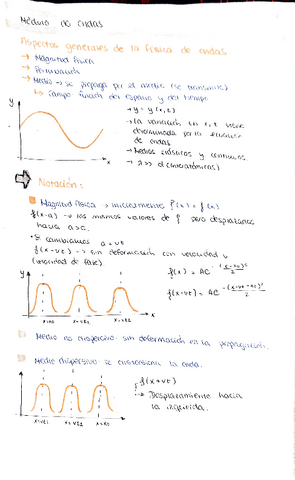 Módulo de ondas
Aspectos generales de la física de ondas
→ Magnitud física
→ Perturbación
→ Medio → se propaga por el medio (se transmite)
↳ Campo función del espacio y del tiempo
y
x
→ y = y(x,t)
→ la variación en x,t viene
determinada por la ecuación
de ondas
→ Medios elásticos y continuos
→ λ >> d (interatómicas)
Notación:
Magnitud Física → inicialmente f(x)
f(x-a) → los mismos valores de f pero desplazados
hacia a>0.
• Si cambiamos a = vt
f(x-vt) → sin deformación con velocidad v
(velocidad de fase).
y
x
Medio no dispersivo: sin deformación en la propagación.
Medio dispersivo: se distorsiona la onda.
f(x+vt)
→ Desplazamiento hacia
la izquierda.